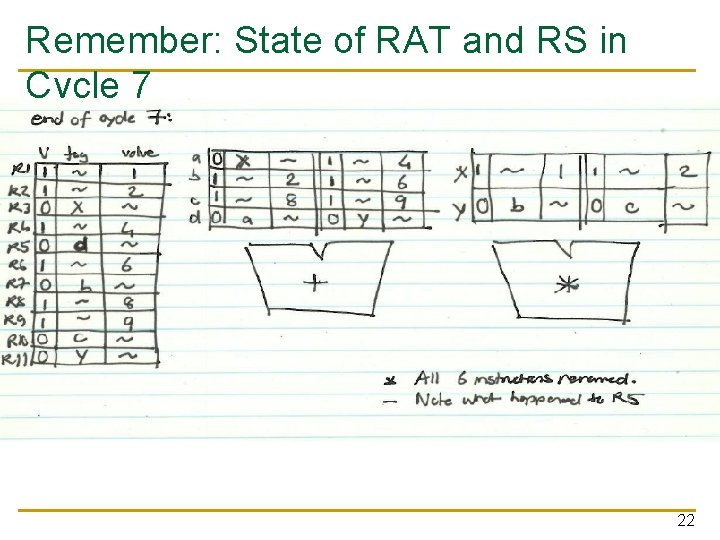 Remember: State of RAT and RS in
Cycle 7
end of cycle 7:
V tag value
R1 1 ~ 1
R2 1 ~ 2
R3 0 x ~
R4 1 ~ 4
R5 0 d ~
R6 1 ~ 6
R7 0 b ~
R8 1 ~ 8
R9 1 ~ 9
R10 0 c ~
R11 0 y ~
a 0 x ~ 1 ~ 4
b 1 ~ 2 1 ~ 6
c 1 ~ 8 1 ~ 9
d 0 a ~ 0 y ~
x 1 ~ 1 1 ~ 2
y 0 b ~ 0 c ~
+
*
* All 6 instructions renamed.
— Note what happened to R5
22